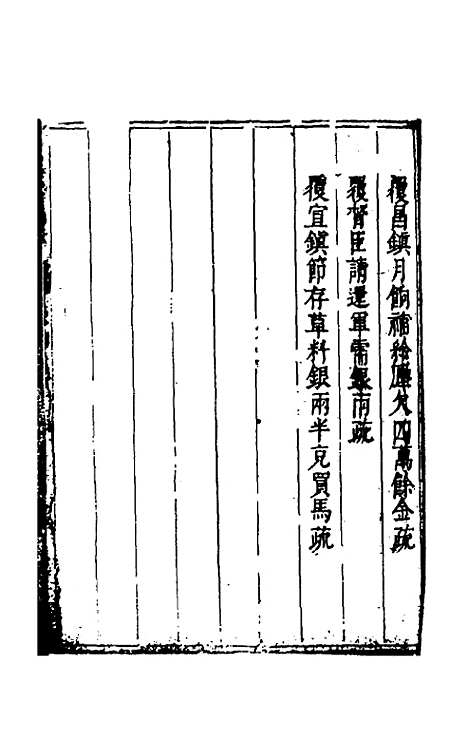 覆昌鎮月餉補給屢欠四萬餘金疏
覆督臣請還軍需銀兩疏
覆宜鎮節存草料銀兩半克買馬疏